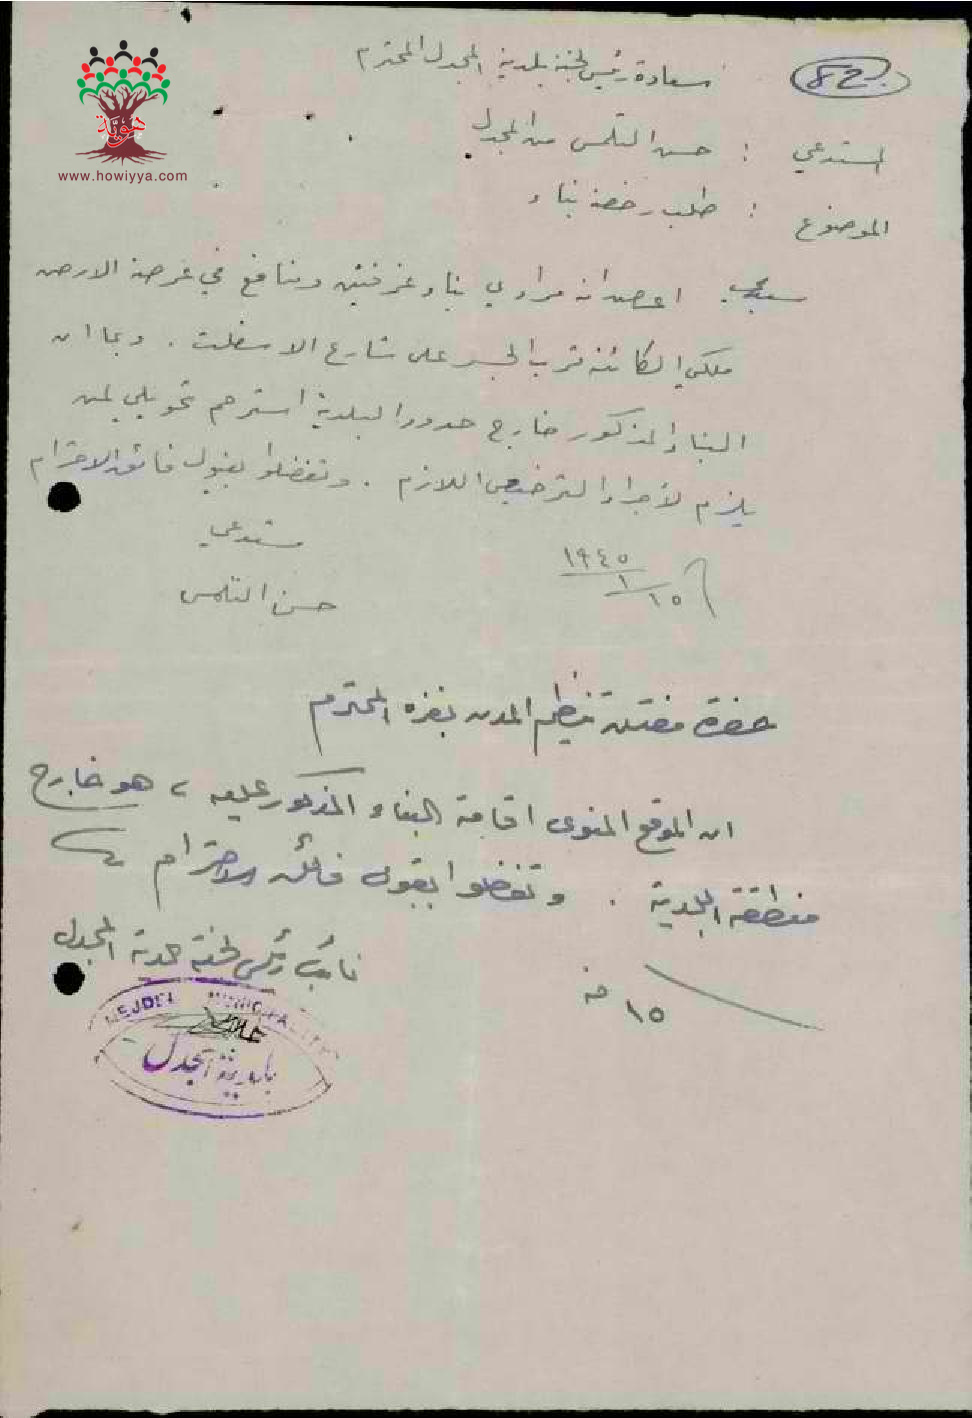 هوية
www.howiyya.com
سعادة رئيس لجنة بلدية المجدل المحترم
المستدعي : حسن التلمس من المجدل
الموضوع : طلب رخصة بناء
سيدي اعرض انه مرادي بناء غرفتين ومنافع في عرصة الارض
ملكي الكائنة قرب الجسر على شارع الاسفلت . وبما ان
البناء المذكور خارج حدود البلدية استرحم تحويلي لمن
يلزم لاجراء الترخيص اللازم . وتفضلوا بقبول فائق الاحترام
مستدعي
١٩٤٥
١
١٥
حسن التلمس
حضرة مفتش تنظيم المدن بغزه المحترم
ان الموقع المنوى اقامة البناء المذكور عليه ، هو خارج
منطقة البلدية . وتفضلوا بقبول فائق الاحترام
نائب رئيس لجنة بلدية المجدل
١٥ منه
MEJDEL MUNICIPALITY
بلدية المجدل